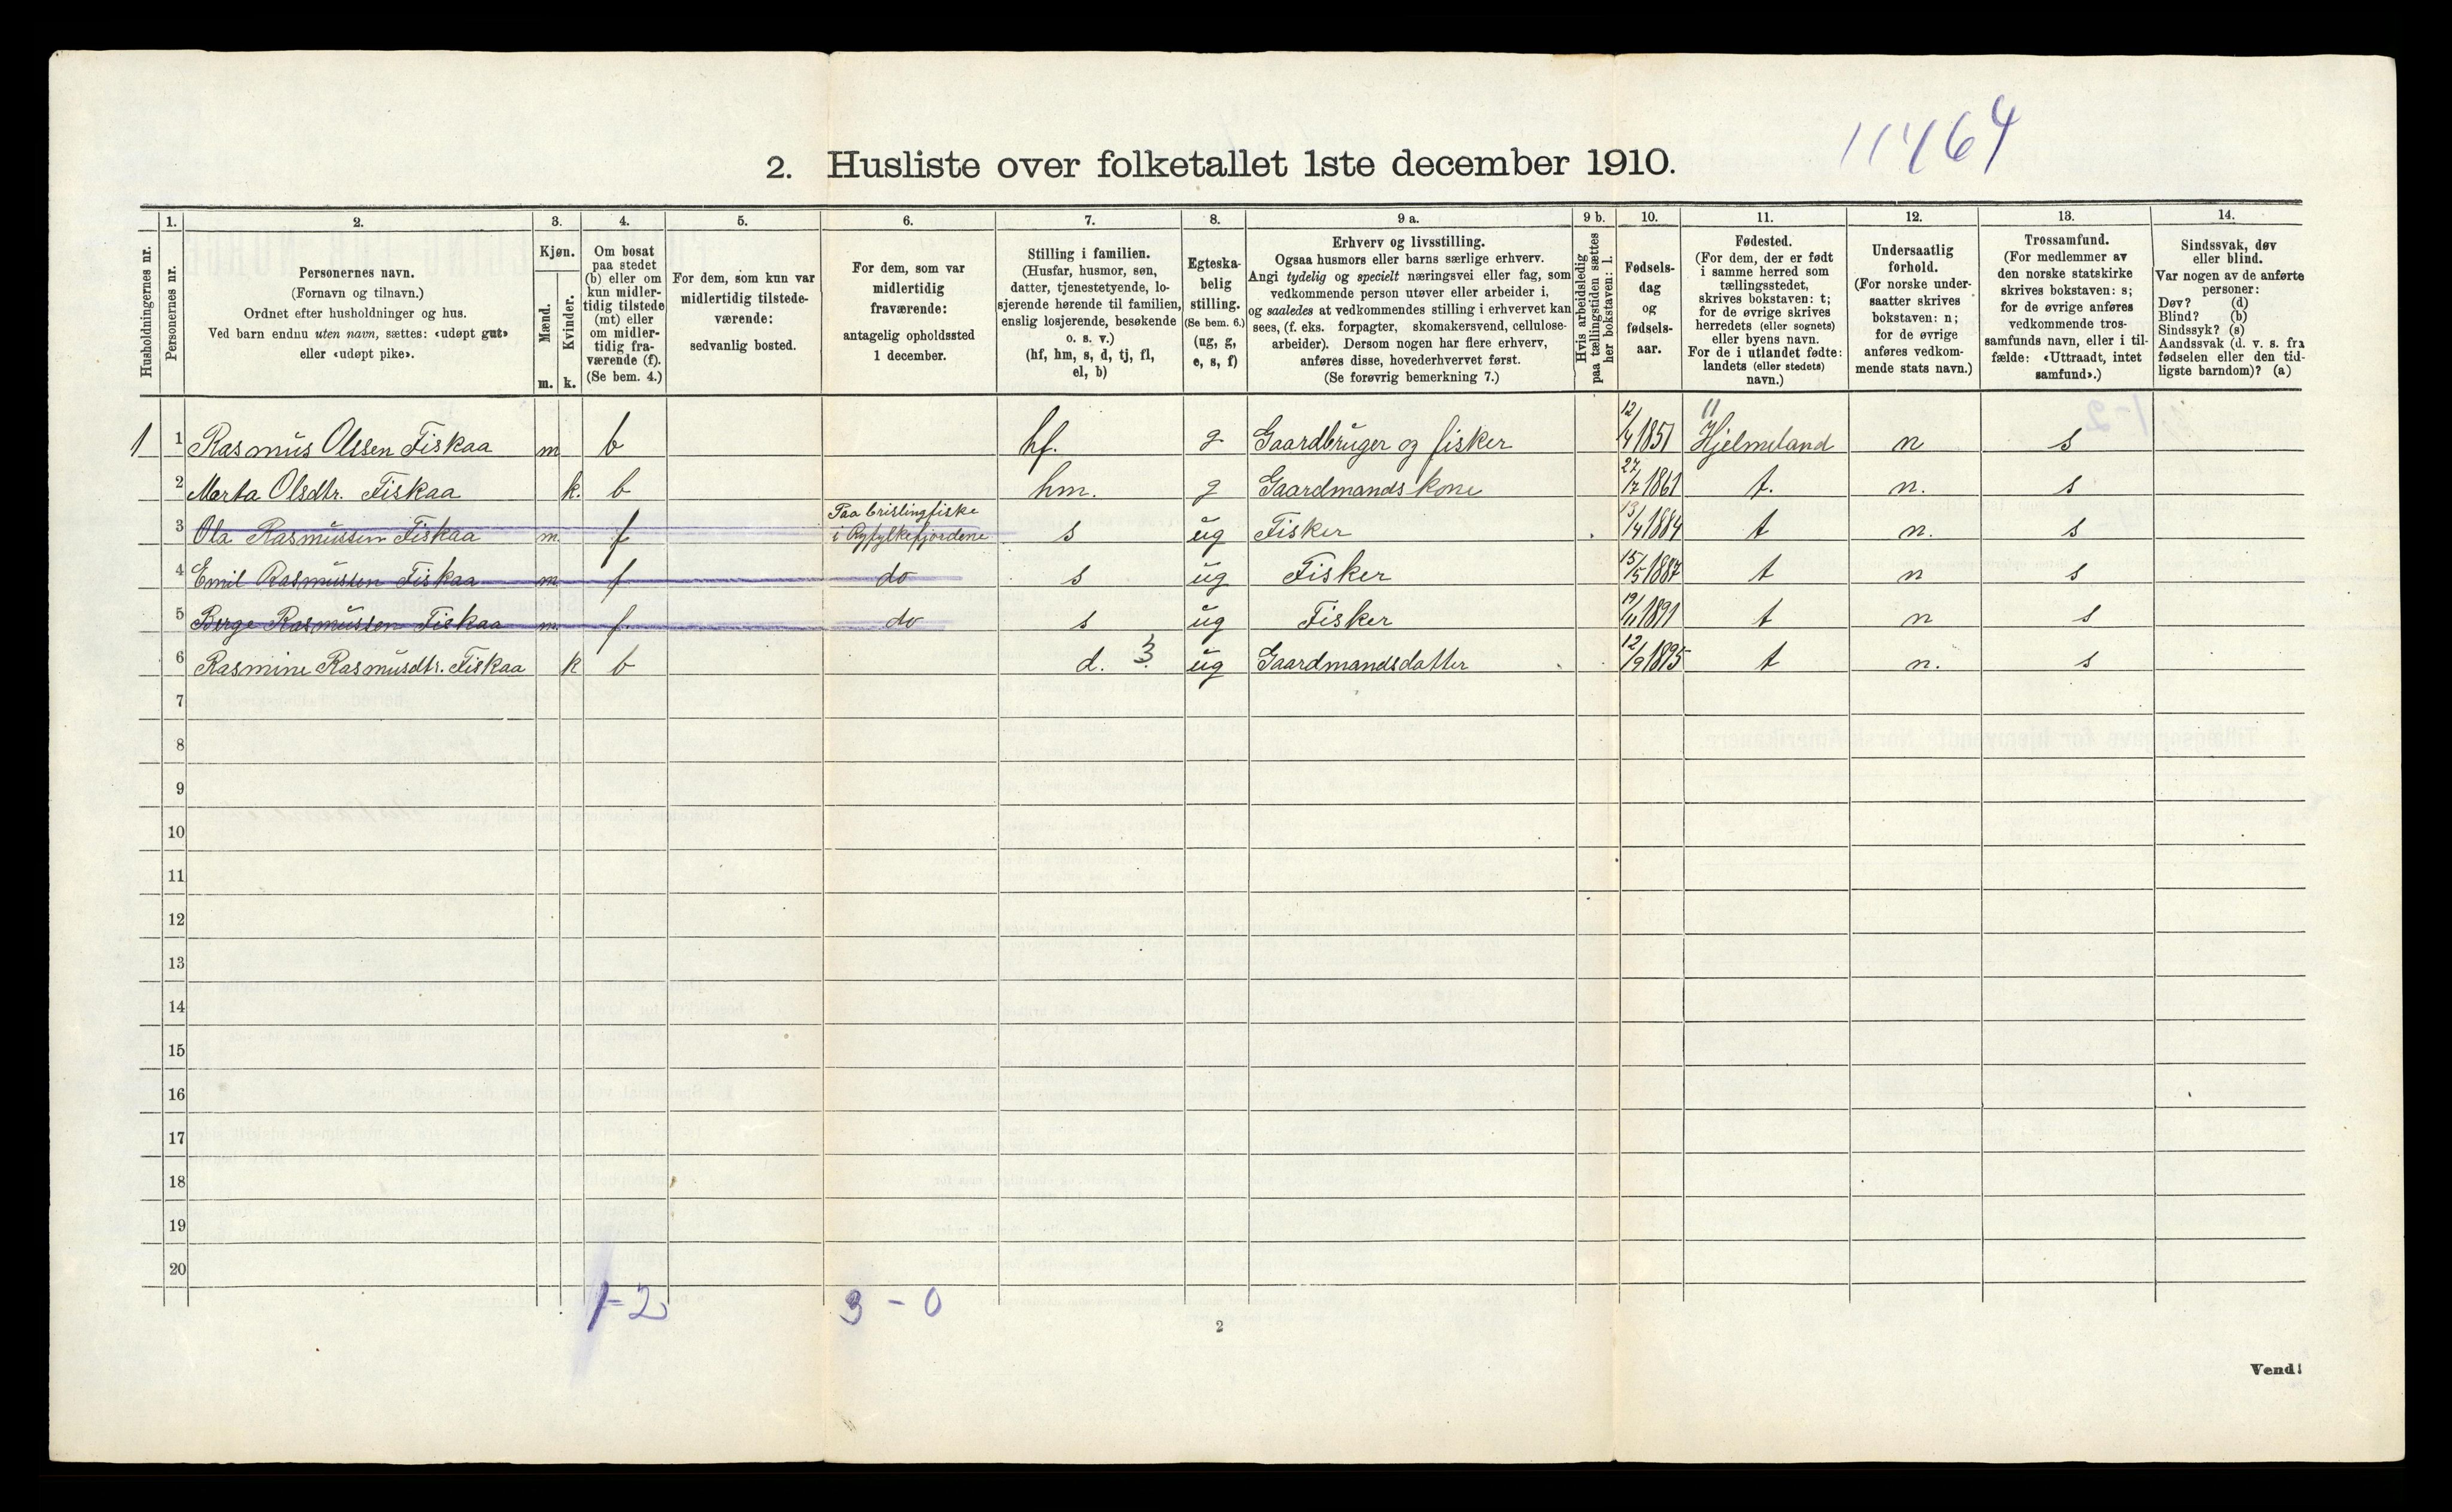 11464
2. Husliste over folketallet 1ste december 1910.
1. 2. 3. 4. 5. 6. 7. 8. 9 a. 9 b. 10. 11. 12. 13. 14.
Husholdningernes nr.
Personernes nr.
Personernes navn.
(Fornavn og tilnavn.)
Ordnet efter husholdninger og hus.
Ved barn endnu uten navn, sættes: «udøpt gut»
eller «udøpt pike».
Kjøn.
Mænd.
Kvinder.
m. k.
Om bosat
paa stedet
(b) eller om
kun midler-
tidig tilstede
(mt) eller
om midler-
tidig fra-
værende (f).
(Se bem. 4.)
For dem, som kun var
midlertidig tilstede-
værende:
sedvanlig bosted.
For dem, som var
midlertidig
fraværende:
antagelig opholdssted
1 december.
Stilling i familien.
(Husfar, husmor, søn,
datter, tjenestetyende, lo-
sjerende hørende til familien,
enslig losjerende, besøkende
o. s. v.)
(hf, hm, s, d, tj, fl,
el, b)
Egteska-
belig
stilling.
(Se bem. 6.)
(ug, g,
e, s, f)
Erhverv og livsstilling.
Ogsaa husmors eller barns særlige erhverv.
Angi tydelig og specielt næringsvei eller fag, som
vedkommende person utøver eller arbeider i,
og saaledes at vedkommendes stilling i erhvervet kan
sees, (f. eks. forpagter, skomakersvend, cellulose-
arbeider). Dersom nogen har flere erhverv,
anføres disse, hovederhvervet først.
(Se forøvrig bemerkning 7.)
Hvis arbeidsledig
paa tællingstiden sættes
her bokstaven: l.
Fødsels-
dag
og
fødsels-
aar.
Fødested.
(For dem, der er født
i samme herred som
tællingsstedet,
skrives bokstaven: t;
for de øvrige skrives
herredets (eller sognets)
eller byens navn.
For de i utlandet fødte:
landets (eller stedets)
navn.)
Undersaatlig
forhold.
(For norske under-
saatter skrives
bokstaven: n;
for de øvrige
anføres vedkom-
mende stats navn.)
Trossamfund.
(For medlemmer av
den norske statskirke
skrives bokstaven: s;
for de øvrige anføres
vedkommende tros-
samfunds navn, eller i til-
fælde: «Uttraadt, intet
samfund».)
Sindssvak, døv
eller blind.
Var nogen av de anførte
personer:
Døv? (d)
Blind? (b)
Sindssyk? (s)
Aandssvak (d. v. s. fra
fødselen eller den tid-
ligste barndom)? (a)
1 1 Rasmus Olssen Fiskaa m b hf. g Gaardbruger og fisker 12/4 1851 11 Hjelmeland n s
2 Marta Olsdtr. Fiskaa k. b hm. g Gaardmands kone 27/7 1861 t. n. s
3 Ola Rasmussen Fiskaa m. f Paa brislingfiske
i Ryfylkefjordene s ug Fisker 13/4 1884 t n. s
4 Emil Rasmussen Fiskaa m. f do s ug Fisker 15/5 1887 t n s
5 Børge Rasmussen Fiskaa m. f. do s ug Fisker 19/11 1891 t n s
6 Rasmine Rasmusdtr. Fiskaa k b d. 3 ug Gaardmandsdatter 12/9 1895 t n. s
7
8
9
10
11
12
13
14
15
16
17
18
19
20
1-2 3 - 0
2
Vend!